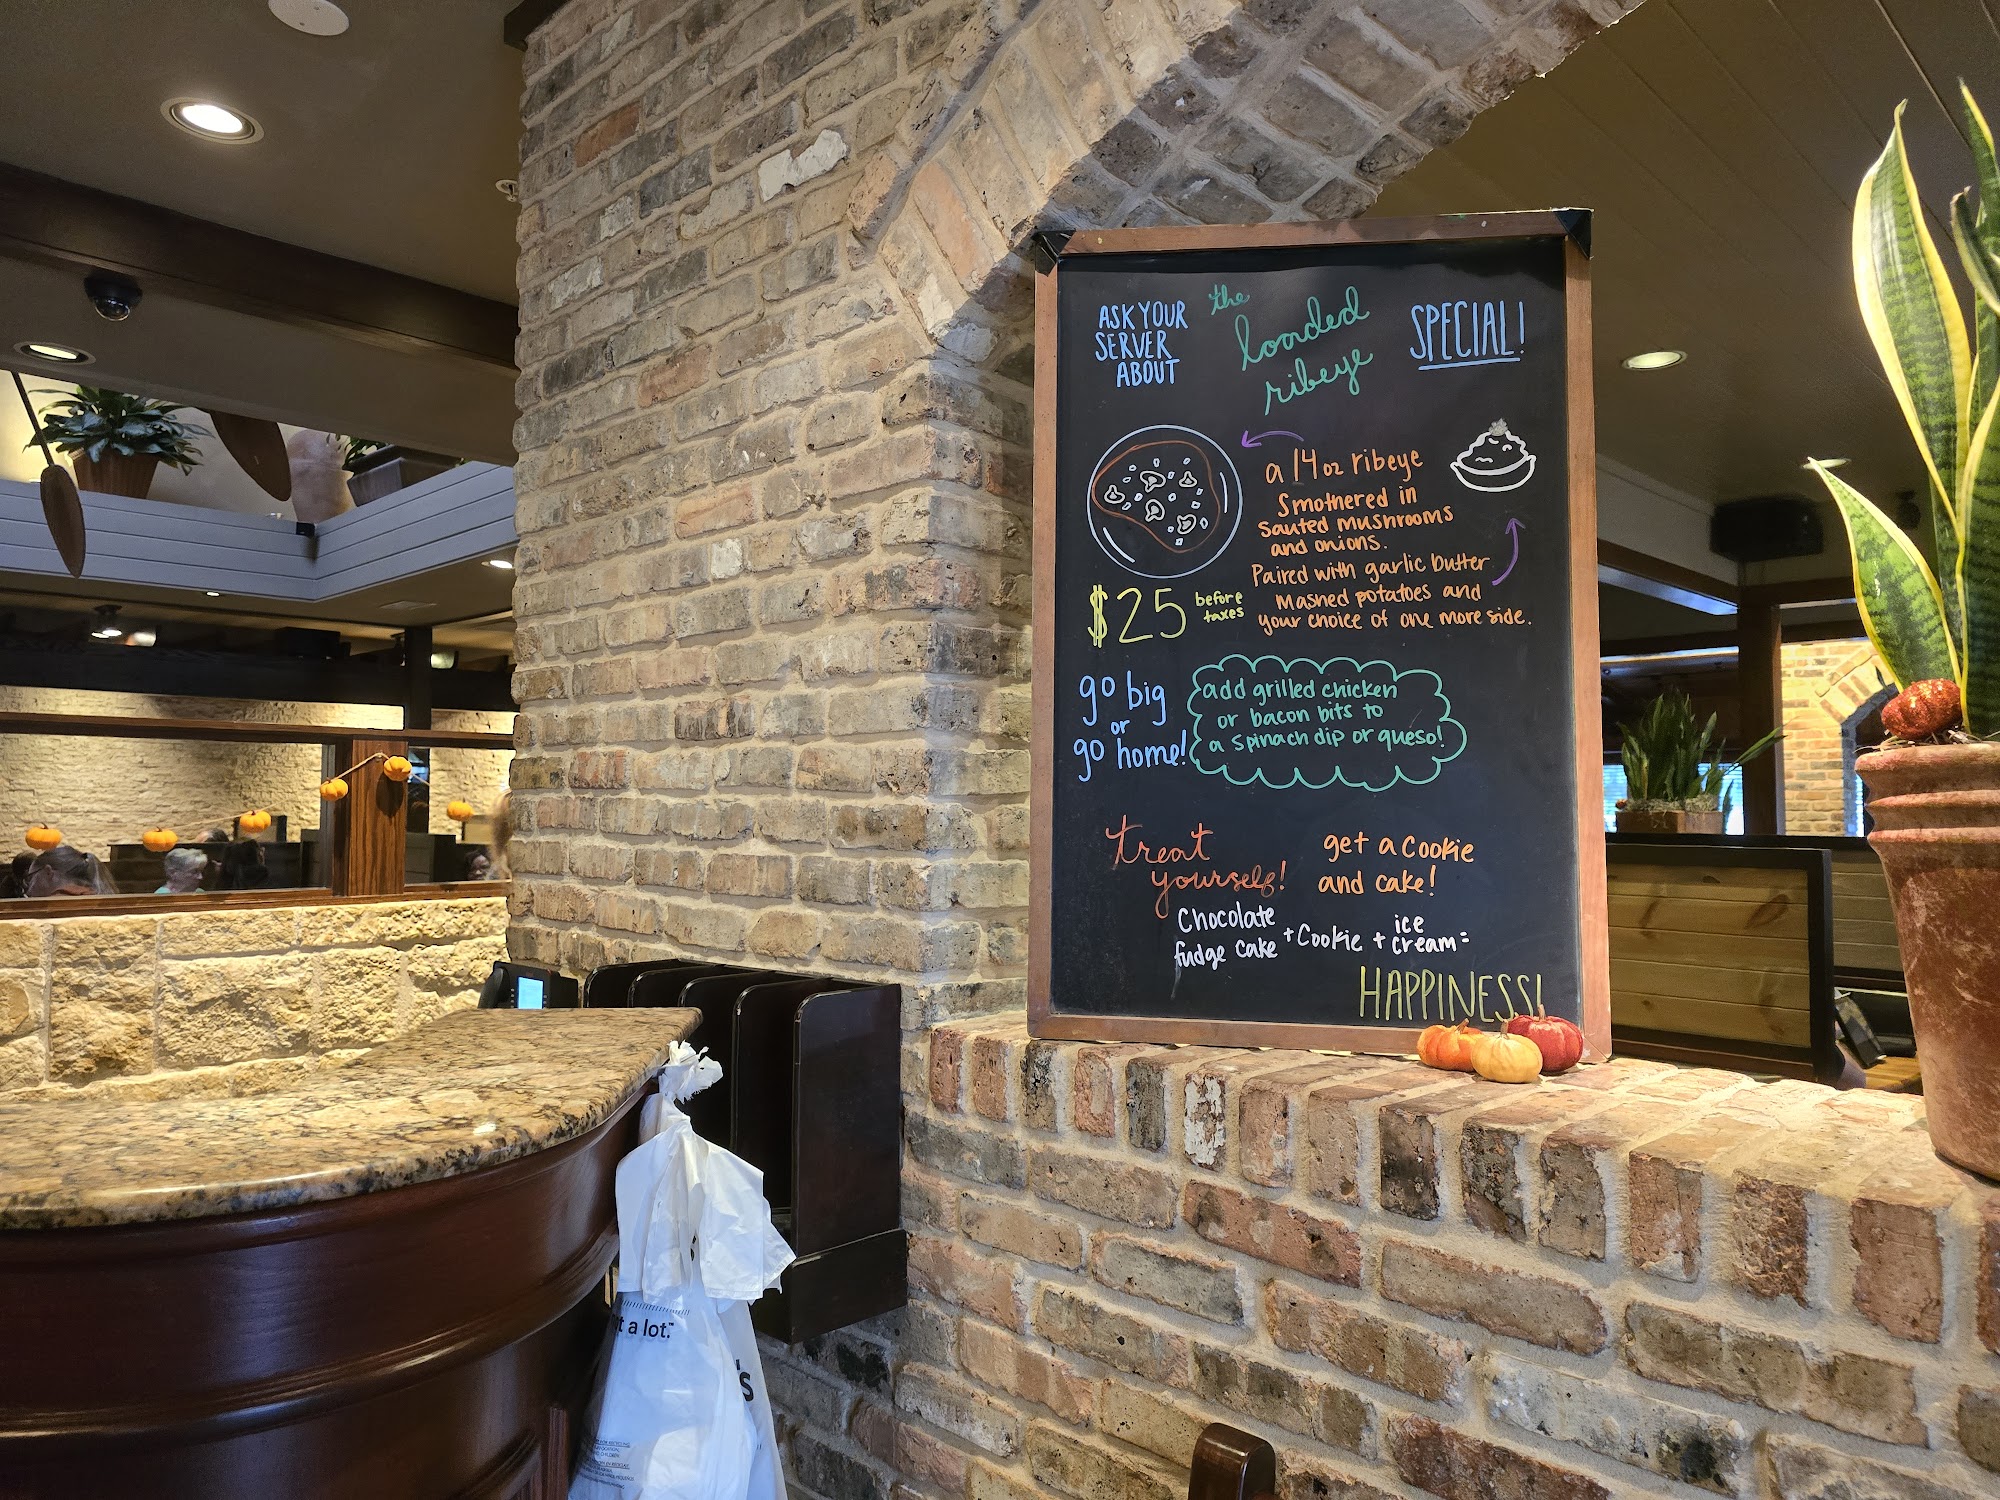 ASK YOUR
SERVER
ABOUT
the
loaded
ribeye
SPECIAL!
a 14 oz ribeye
Smothered in
sauted mushrooms
and onions.
Paired with garlic butter
mashed potatoes and
your choice of one more side.
$25
before
taxes
go big
or
go home!
add grilled chicken
or bacon bits to
a spinach dip or queso!
treat
yourself!
get a cookie
and cake!
Chocolate
fudge cake + Cookie + ice cream =
HAPPINESS!
t a lot.™
's